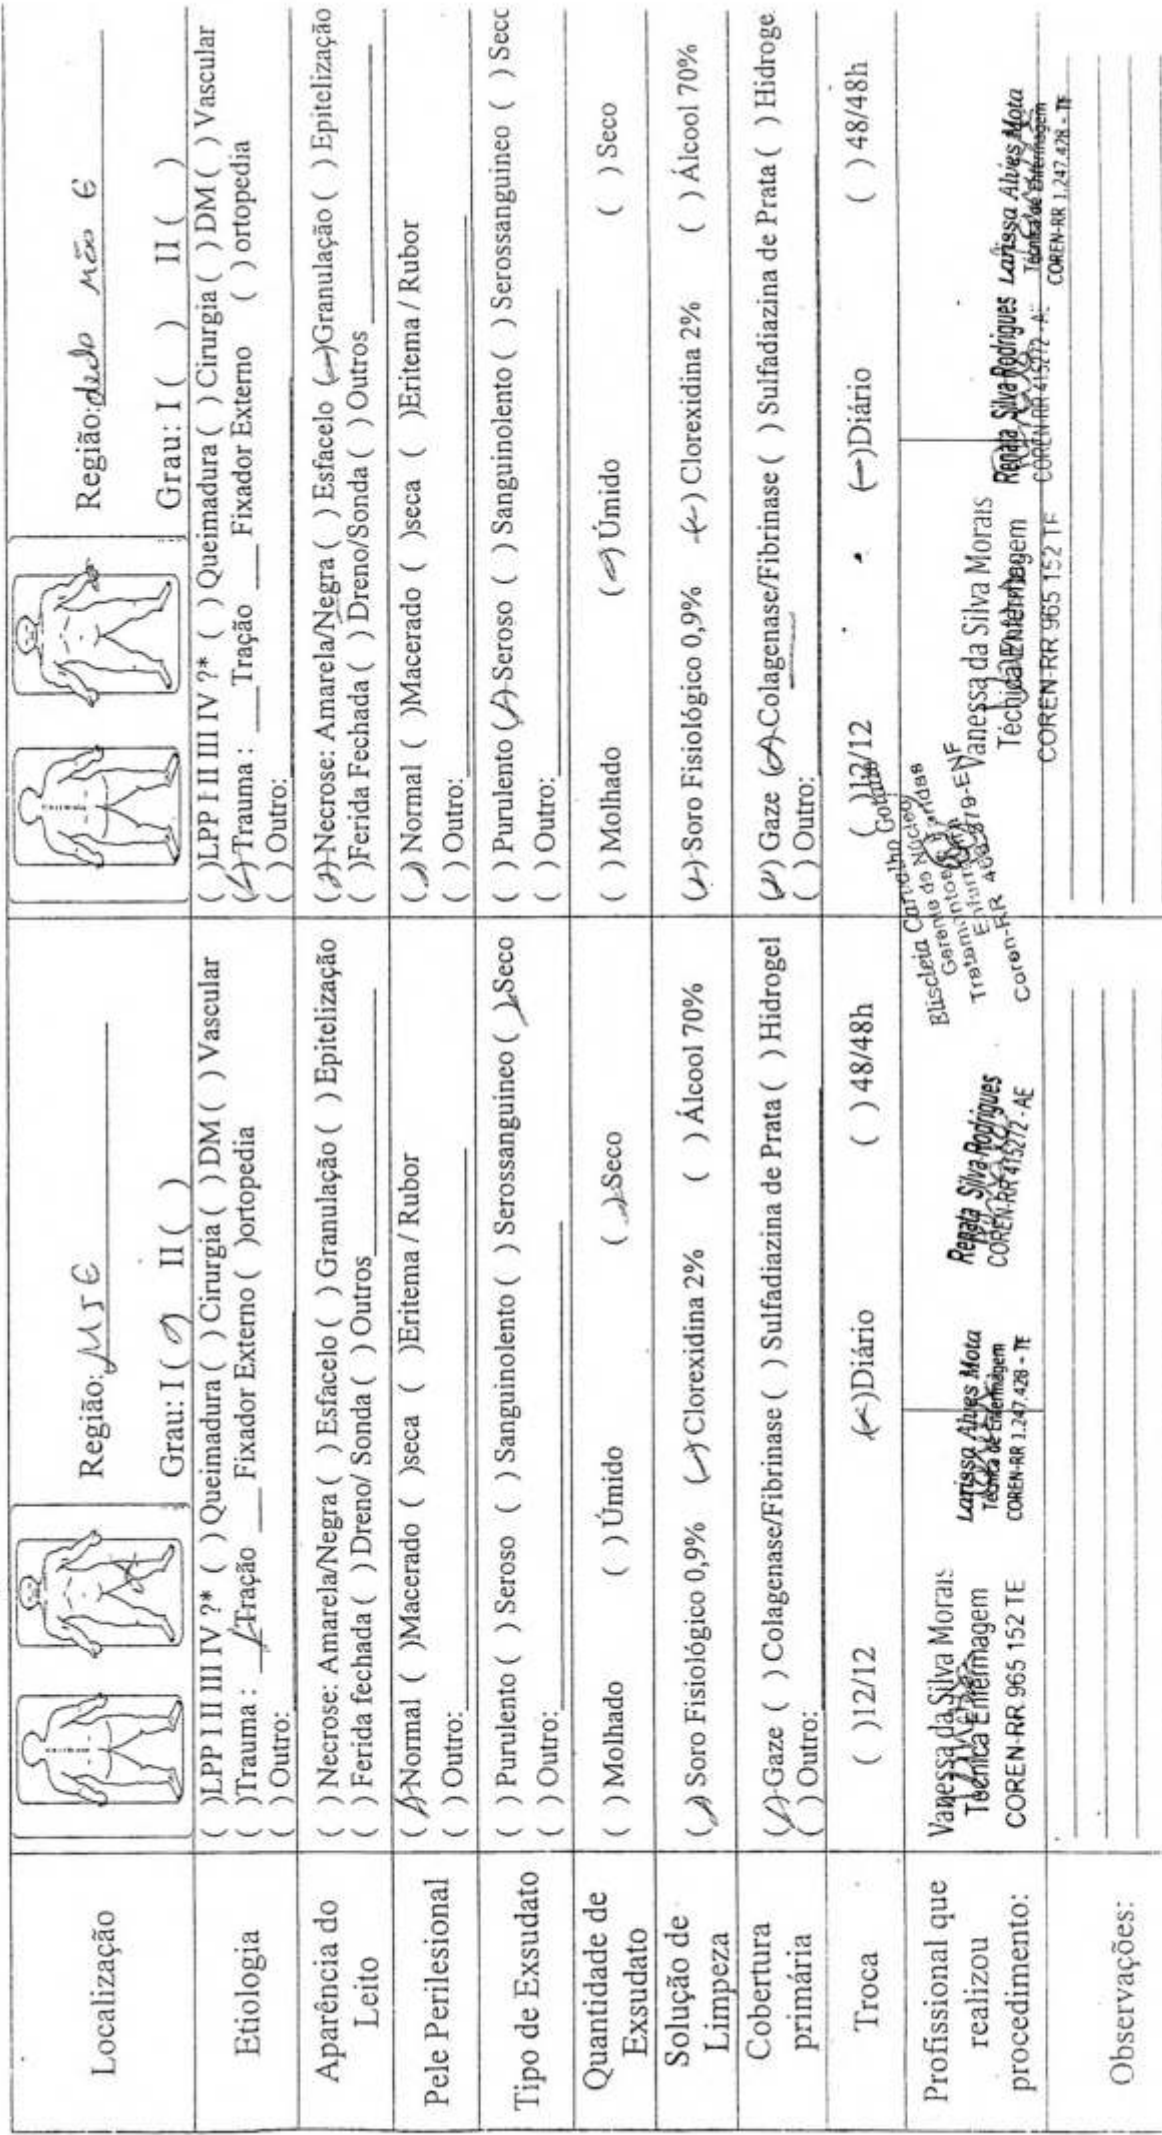 Localização
Região: MIE
Grau: I ( ) II ( )
Região: dedo mão E
Grau: I ( ) II ( )
Etiologia
( )LPP I II III IV ?* ( ) Queimadura ( ) Cirurgia ( ) DM ( ) Vascular
( )Trauma : ___Tração ___Fixador Externo ( )ortopedia
( ) Outro:
( )LPP I II III IV ?* ( ) Queimadura ( ) Cirurgia ( ) DM ( ) Vascular
( )Trauma : ___Tração ___Fixador Externo ( ) ortopedia
( ) Outro:
Aparência do
Leito
( ) Necrose: Amarela/Negra ( ) Esfacelo ( ) Granulação ( ) Epitelização
( ) Ferida fechada ( ) Dreno/ Sonda ( ) Outros
( )Necrose: Amarela/Negra ( ) Esfacelo ( )Granulação ( ) Epitelização
( )Ferida Fechada ( ) Dreno/Sonda ( ) Outros
Pele Perilesional
( )Normal ( )Macerado ( )seca ( )Eritema / Rubor
( ) Outro:
( ) Normal ( )Macerado ( )seca ( )Eritema / Rubor
( ) Outro:
Tipo de Exsudato
( ) Purulento ( ) Seroso ( ) Sanguinolento ( ) Serossanguineo ( ) Seco
( ) Outro:
( ) Purulento ( ) Seroso ( ) Sanguinolento ( ) Serossanguineo ( ) Secc
( ) Outro:
Quantidade de
Exsudato
( ) Molhado ( ) Úmido ( ) Seco
( ) Molhado ( ) Úmido ( ) Seco
Solução de
Limpeza
( ) Soro Fisiológico 0,9% ( ) Clorexidina 2% ( ) Álcool 70%
( ) Soro Fisiológico 0,9% ( ) Clorexidina 2% ( ) Álcool 70%
Cobertura
primária
( ) Gaze ( ) Colagenase/Fibrinase ( ) Sulfadiazina de Prata ( ) Hidrogel
( ) Outro:
( ) Gaze ( ) Colagenase/Fibrinase ( ) Sulfadiazina de Prata ( ) Hidroge
( ) Outro:
Troca
( )12/12 ( )Diário ( ) 48/48h
( )12/12 ( )Diário ( ) 48/48h
Profissional que
realizou
procedimento:
Vanessa da Silva Morais
Técnica Enfermagem
COREN-RR 965 152 TE
Larissa Alves Mota
Técnica de Enfermagem
COREN-RR 1.247.428 - TE
Renata Silva Rodrigues
COREN-RR 415272 - AE
Gerente do Núcleo
Coren-RR
Vanessa da Silva Morais
COREN-RR 965 152 TE
Renata Silva Rodrigues
COREN-RR 415272 - AE
Larissa Alves Mota
Técnica de Enfermagem
COREN-RR 1.247.428 - TE
Observações: